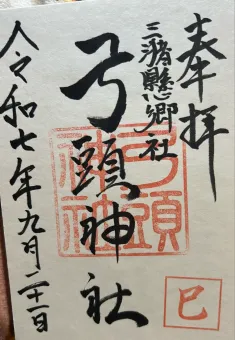 奉拝
三潴懸郷社
弓頭神社
弓頭神社
令和七年九月二十一日
巳